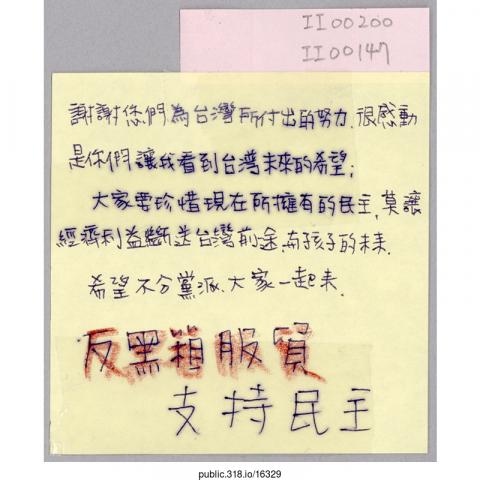 II00200
II00147
謝謝您們為台灣所付出的努力、很感動
是你們讓我看到台灣未來的希望;
大家要珍惜現在所擁有的民主,莫讓
經濟利益斷送台灣前途、有孩子的未來.
希望不分黨派、大家一起來.
反黑箱服貿
支持民主
public.318.io/16329